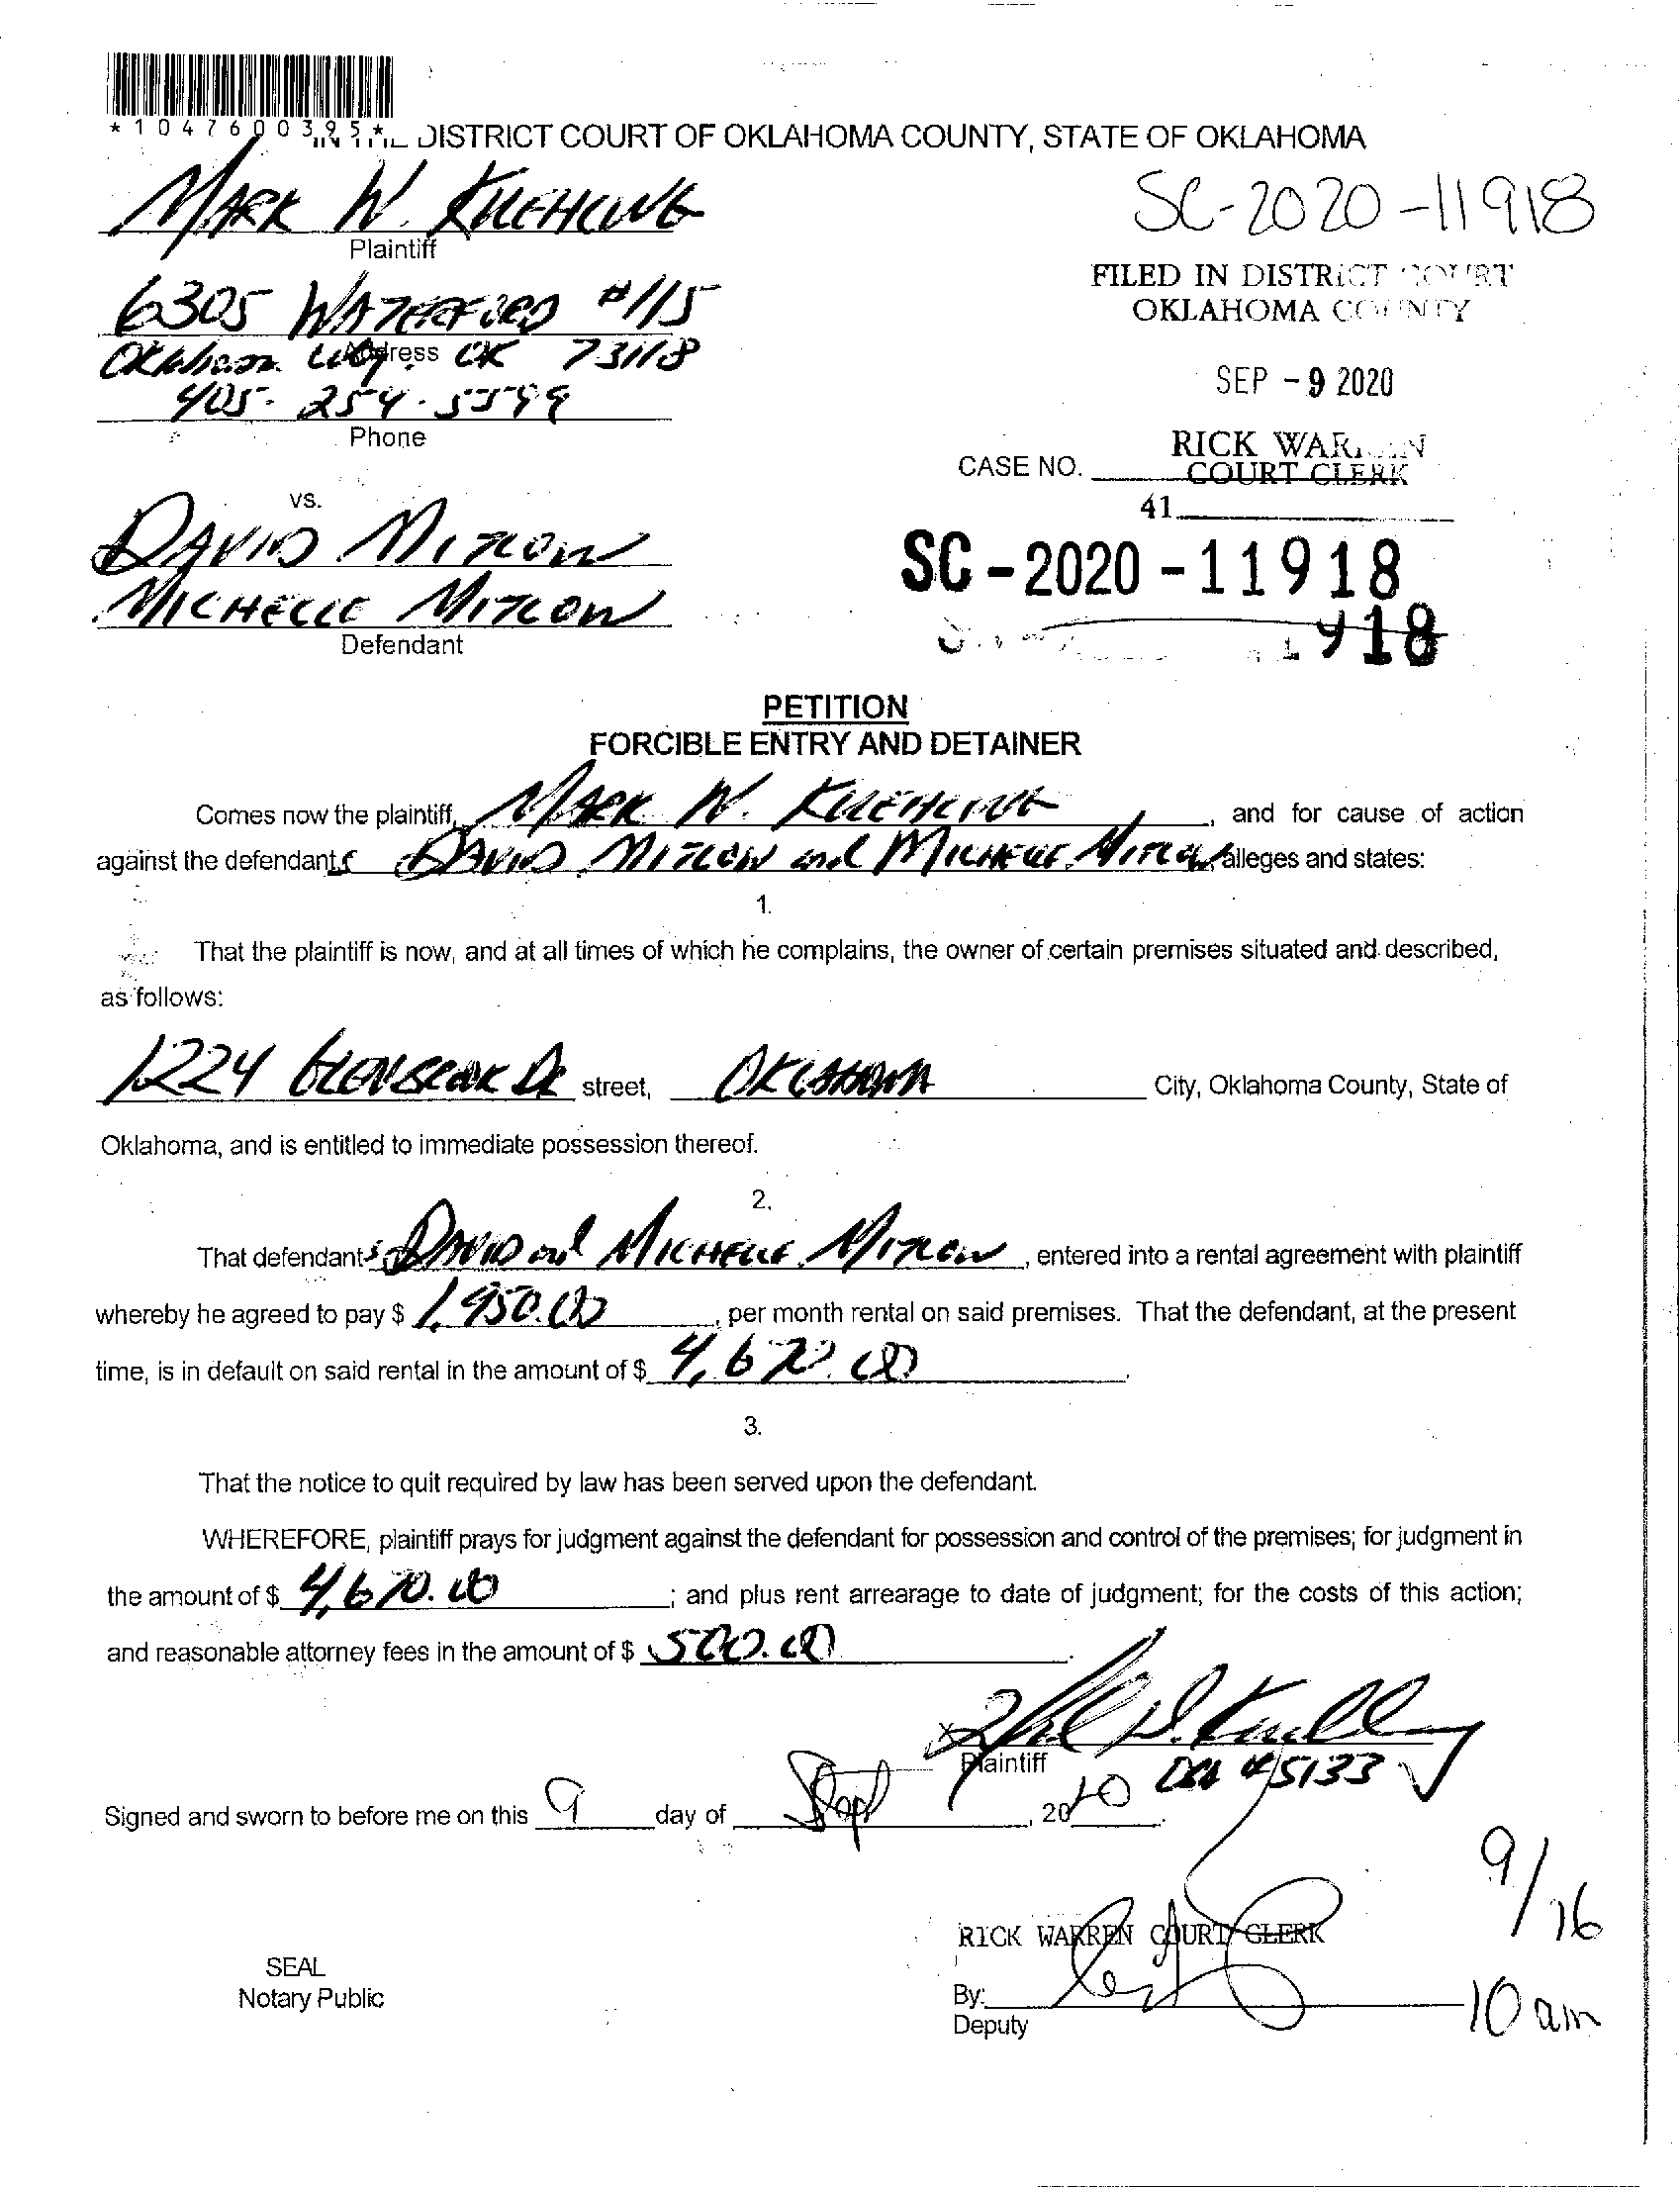 *1047600395*
IN THE DISTRICT COURT OF OKLAHOMA COUNTY, STATE OF OKLAHOMA
MARK W. KUEHLING
Plaintiff
SC-2020-11918
FILED IN DISTRICT COURT
OKLAHOMA COUNTY
6305 WATERFORD #115
Oklahoma City OK 73118
Address
SEP - 9 2020
405-254-5599
Phone
RICK WARREN
COURT CLERK
CASE NO.
41
vs.
DAVID MITLOW
MICHELLE MITLOW
Defendant
SC-2020-11918
918
PETITION
FORCIBLE ENTRY AND DETAINER
Comes now the plaintiff, MARK W. KUEHLING, and for cause of action
against the defendants DAVID MITLOW and MICHELLE MITLOW alleges and states:
1.
That the plaintiff is now, and at all times of which he complains, the owner of certain premises situated and described,
as follows:
1224 street, OKLAHOMA City, Oklahoma County, State of
Oklahoma, and is entitled to immediate possession thereof.
2.
That defendants DAVID and MICHELLE MITLOW, entered into a rental agreement with plaintiff
whereby he agreed to pay $ 1,950.00, per month rental on said premises. That the defendant, at the present
time, is in default on said rental in the amount of $ 4,670.00.
3.
That the notice to quit required by law has been served upon the defendant.
WHEREFORE, plaintiff prays for judgment against the defendant for possession and control of the premises; for judgment in
the amount of $ 4,670.00; and plus rent arrearage to date of judgment; for the costs of this action;
and reasonable attorney fees in the amount of $ 500.00.
Plaintiff
OBA #5133
Signed and sworn to before me on this 9 day of Sept, 2020.
9/16
RICK WARREN COURT CLERK
SEAL
Notary Public
By:
10 am
Deputy